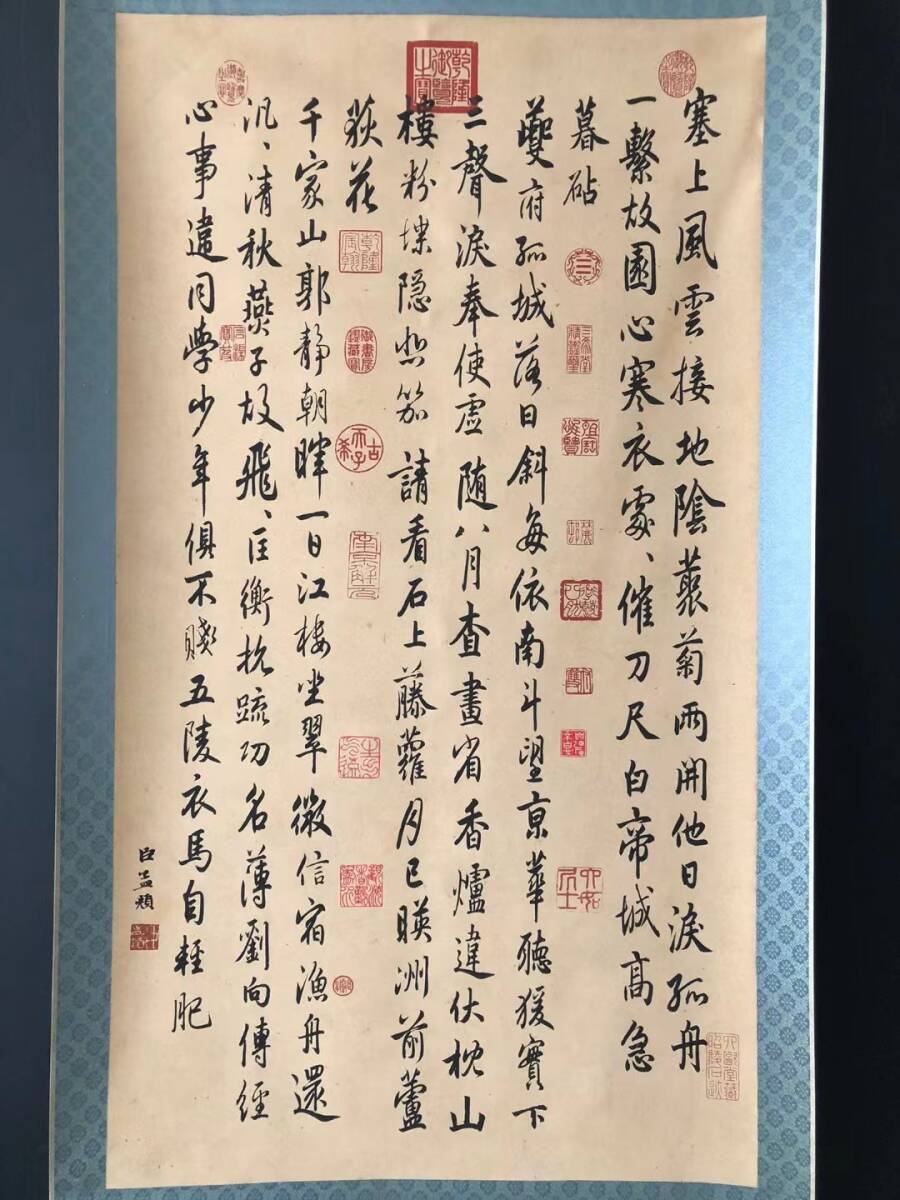 塞上風雲接地陰叢菊兩開他日淚孤舟
一繫故園心寒衣處、催刀尺白帝城高急
暮砧
夔府孤城落日斜每依南斗望京華聽猨實下
三聲淚奉使虛隨八月查畫省香爐違伏枕山
樓粉堞隐悲笳請看石上藤蘿月已暎洲前蘆
荻花
千家山郭靜朝暉一日江樓坐翠微信宿漁舟還
汎、清秋燕子故飛、匡衡抗疏功名薄劉向傳經
心事違同學少年俱不賤五陵衣馬自輕肥
臣孟頫
乾隆御覽之寶
三希堂精鑑璽
六如居士
乾隆宸翰
古希天子
南京解元